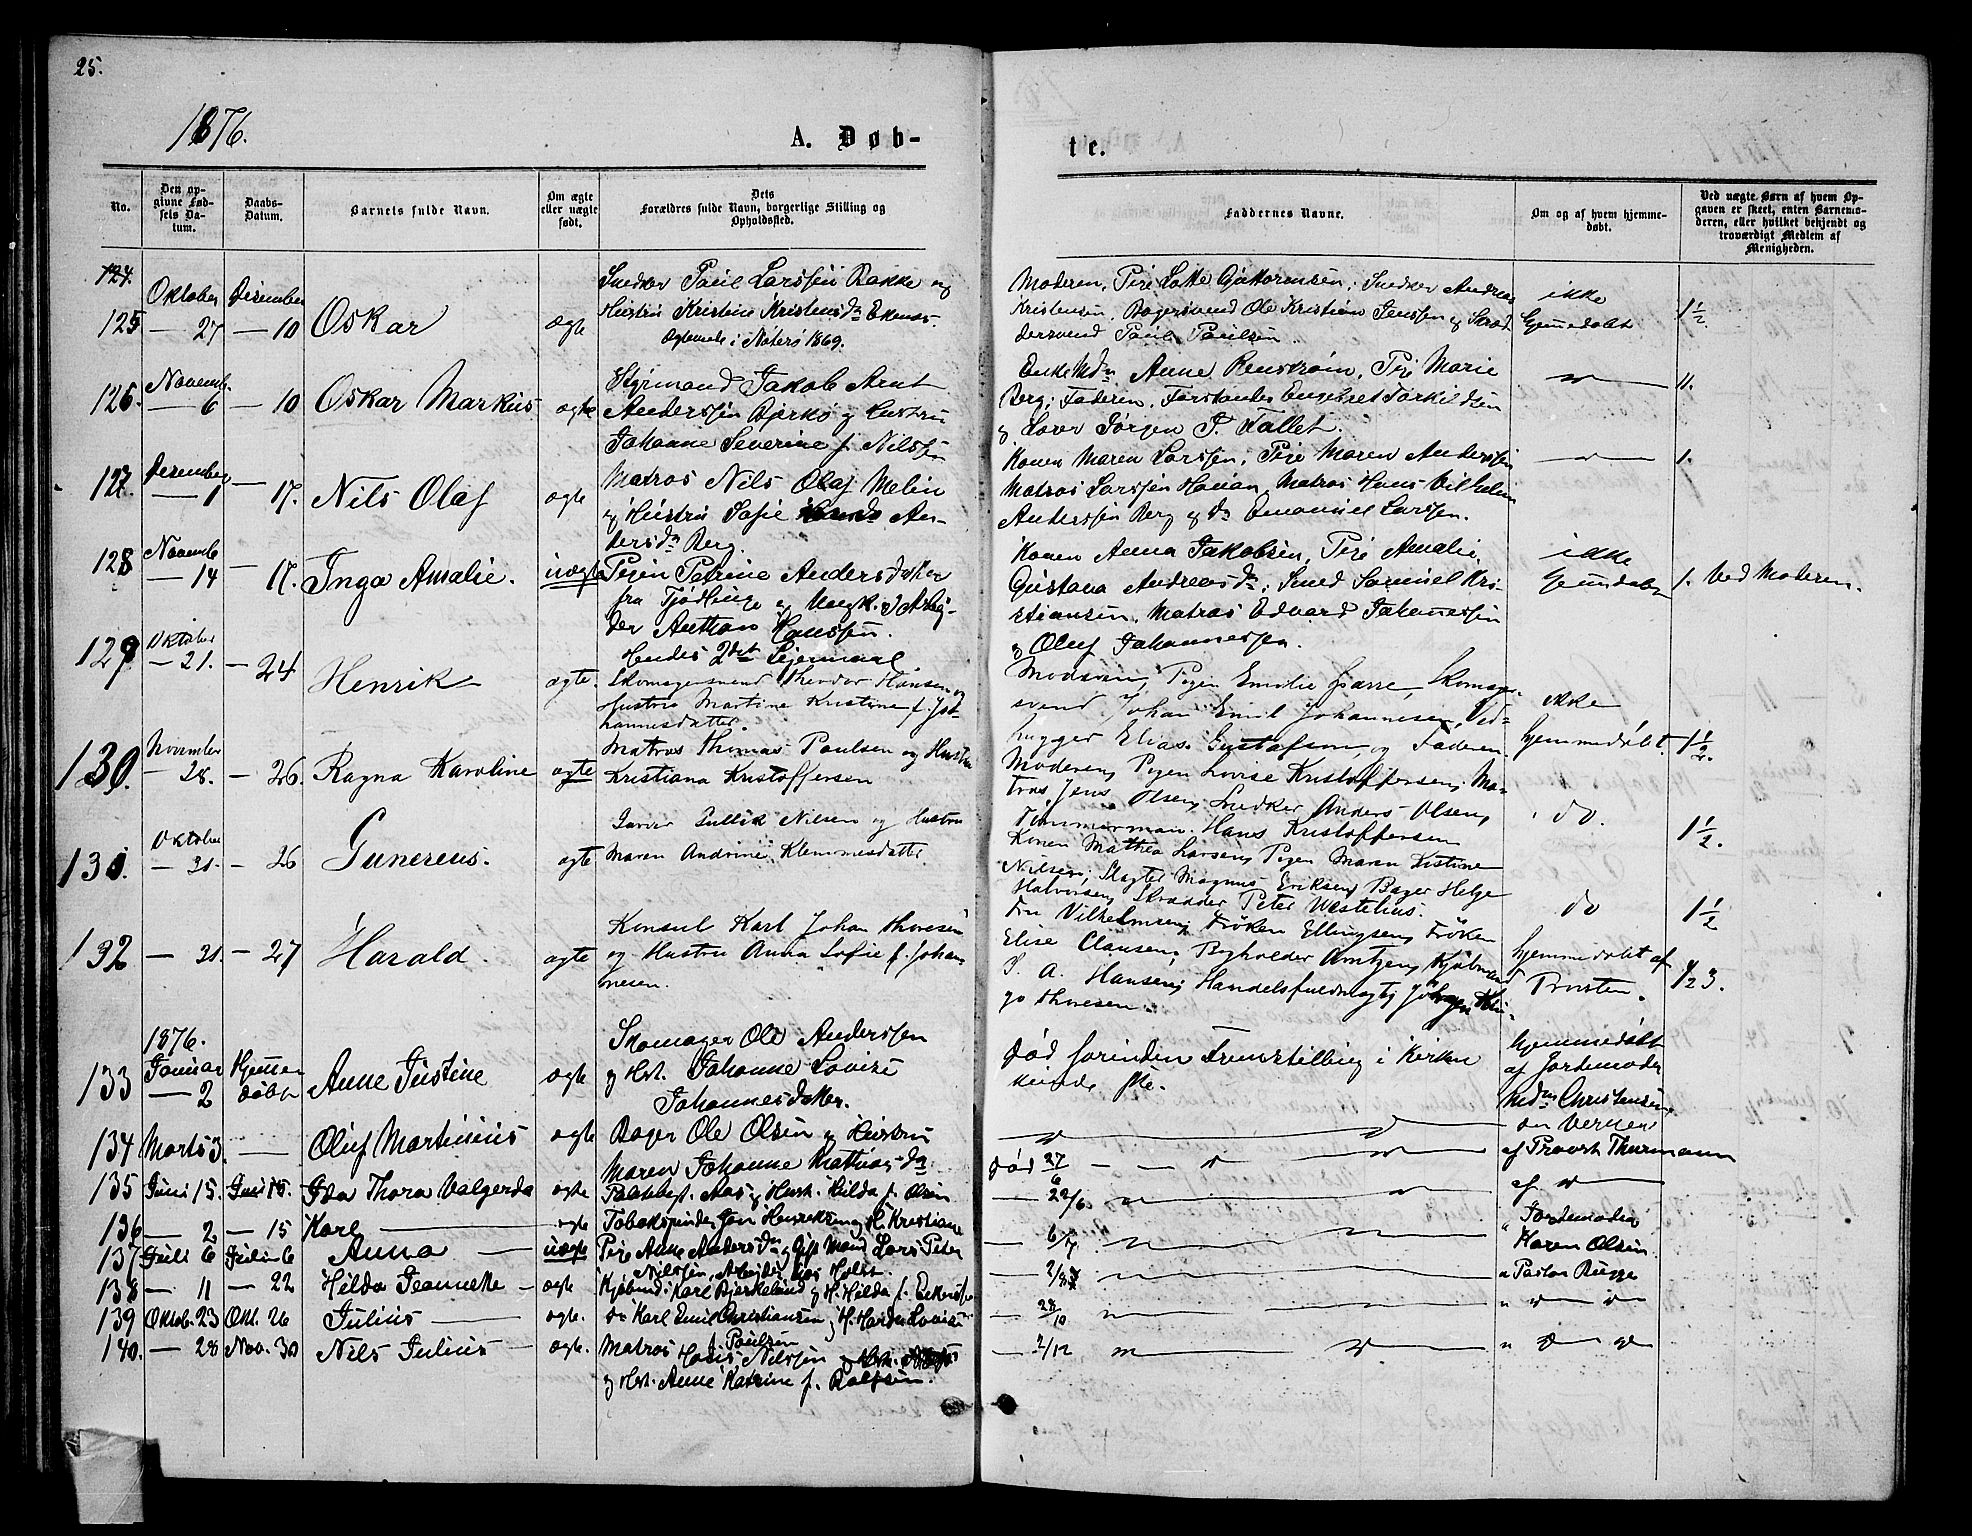 25.
1876.
A. Døb-
te.
No.
Den op-
givne Fød-
sels Da-
tum.
Daabs-
Datum.
Barnets fulde Navn.
Om ægte
eller uægte
født.
Dets
Forældres fulde Navn, borgerlige Stilling og
Opholdssted.
Faddernes Navne.
Om og af hvem hjemme-
døbt.
Ved uægte Børn af hvem Op-
gaven er skeet, enten Barnemo-
deren, eller hvilket bekjendt og
troværdigt Medlem af
Menigheden.
124.
125 Oktober — 27 Desember — 10 Oskar ægte
Snedker Paul Larssen Bakke og
Hustru Kristine Kristensdr Ekenæs.
Ægteviede i Nøterø 1869.
Moderen, Pige Lotte Guttormsen; Snedker Andreas
Kristensen, Bagersvend Ole Kristian Jenssen og Skræd-
dersvend Paul Paulsen.
ikke
hjemmedøbt
1½.
126. Novemb. — 6 — 10 Oskar Markus ægte
Styrmand Jakob Arnt
Anderssen Bjerkø og Hustru
Johanne Severine f. Nilssen
Enke Anne Renstrøm, Pige Marie
Berg; Faderen, Forstander Engebret Torkildsen
og Lover Jørgen P. Fallet.
127. Desember — 1 — 17. Nils Olaf ægte
Matros Nils Olaf Melin
og Hustru Sofie An-
dersdr Berg.
Konen Maren Larssen, Pige Maren Anderssen
Matros Larssen, Matros Hans Vilhelm
Anderssen Berg og do Emanuel Larssen.
1.
128 Novemb — 14 — 17. Inga Amalie. uægte
Pigen Petrine Andersdatter
fra Tjødlinge og Ungk. Arbei-
der Anthon Hanssen.
Hendes 2det Leiermaal
Konen Anna Jakobsen, Pige Amalie
Gustava Andreasdr; Smed Samuel Kri-
stiansen, Matros Edvard Johannessen
og Oluf Johannessen.
ikke
hjemmedøbt
1. Ved Moderen.
129 Oktober — 21. — 24 Henrik ægte.
Skomagersvend Theodor Hansen og
Hustru Martine Kristine f. Jo-
hannesdatter.
Moderen, Pigen Emilie, Skomager-
svend Johan Emil Johannesen, Ved-
hugger Elias Gustafson og Faderen
ikke
hjemmedøbt.
1½.
130. November — 28. — 26. Ragna Karoline ægte
Matros Thomas Paulsen og Hustru
Kristiana Kristoffersen
Moderen, Pigen Lovise Kristoffersen; Ma-
tros Jens Olsen, Snedker Anders Olsen,
Tømmermand Hans Kristoffersen
do.
1½.
131. Oktober — 31. — 26 Gunereus. ægte
Gullik Nilsen og Hustru
Maren Andrine Klemmesdatter.
Konen Mathea Larsen, Pigen Maren Kistine
Nilsen; Slagter Magnus Eriksen, Bager Helge
Halvorsen, Skrædder Peter Westelius.
do
1½
132 — 31. — 27 Harald. ægte
Konsul Karl Johan Thoresen
og Hustru Anna Sofie f. Johan-
nesen.
Fru Vilhelmsen; Frøken Ellingsen, Frøken
Elise Clausen, Bogholder Arntzen, Kjøbmand
P. A. Hansen; Handelsfuldmægtig
Thoresen.
hjemmedøbt af
Provsten.
1876.
133 Januar — 2 Hjemme-
døbt Anne Justine ægte
Skomager Ole Anderssen
og Hst. Johanne Lovise
Johannesdatter.
Død forinden Fremstilling i Kirken
kunde ske.
hjemmedøbt
af Jordemoder
Mdm Christensen
134 Marts 3. — Oluf Martinius ægte
Bager Ole Olsen og Hustru
Maren Johanne Mathiasdr
af Provst Thurmann
135 Juni 15. Juni 15. Ida Thora Valgerda ægte
Aas og Hust. Hilda f. Olsen
Død 27/6
af
136 — 2 — 15 Karl ægte
Tobakspinder Jon Henriksen og H. Kristiane
— 29/6.
" Jordemoder
137 Juli 6 Juli 6 Anna uægte
Pige Anne Andersdr og Gift Mand Lars Peter
Nilssen, Arbeider hos Holst.
— 6/7
Karen Olsen.
138 — 11 — 22 Hilda Jeannette ægte
Kjøbmd. Karl Bjerkelund og H. Hilda f.
" Pastor Bugge
139 Oktob. 23 Okt. 26 Julius ægte.
do Karl Emil Christiansen og H. Lovise
— 28/10
140. — 28 Nov. 30 Nils Julius ægte.
Matros Hans Nilssen
og Hst. Anne Katrine f. Rolfsen.
— 2/12